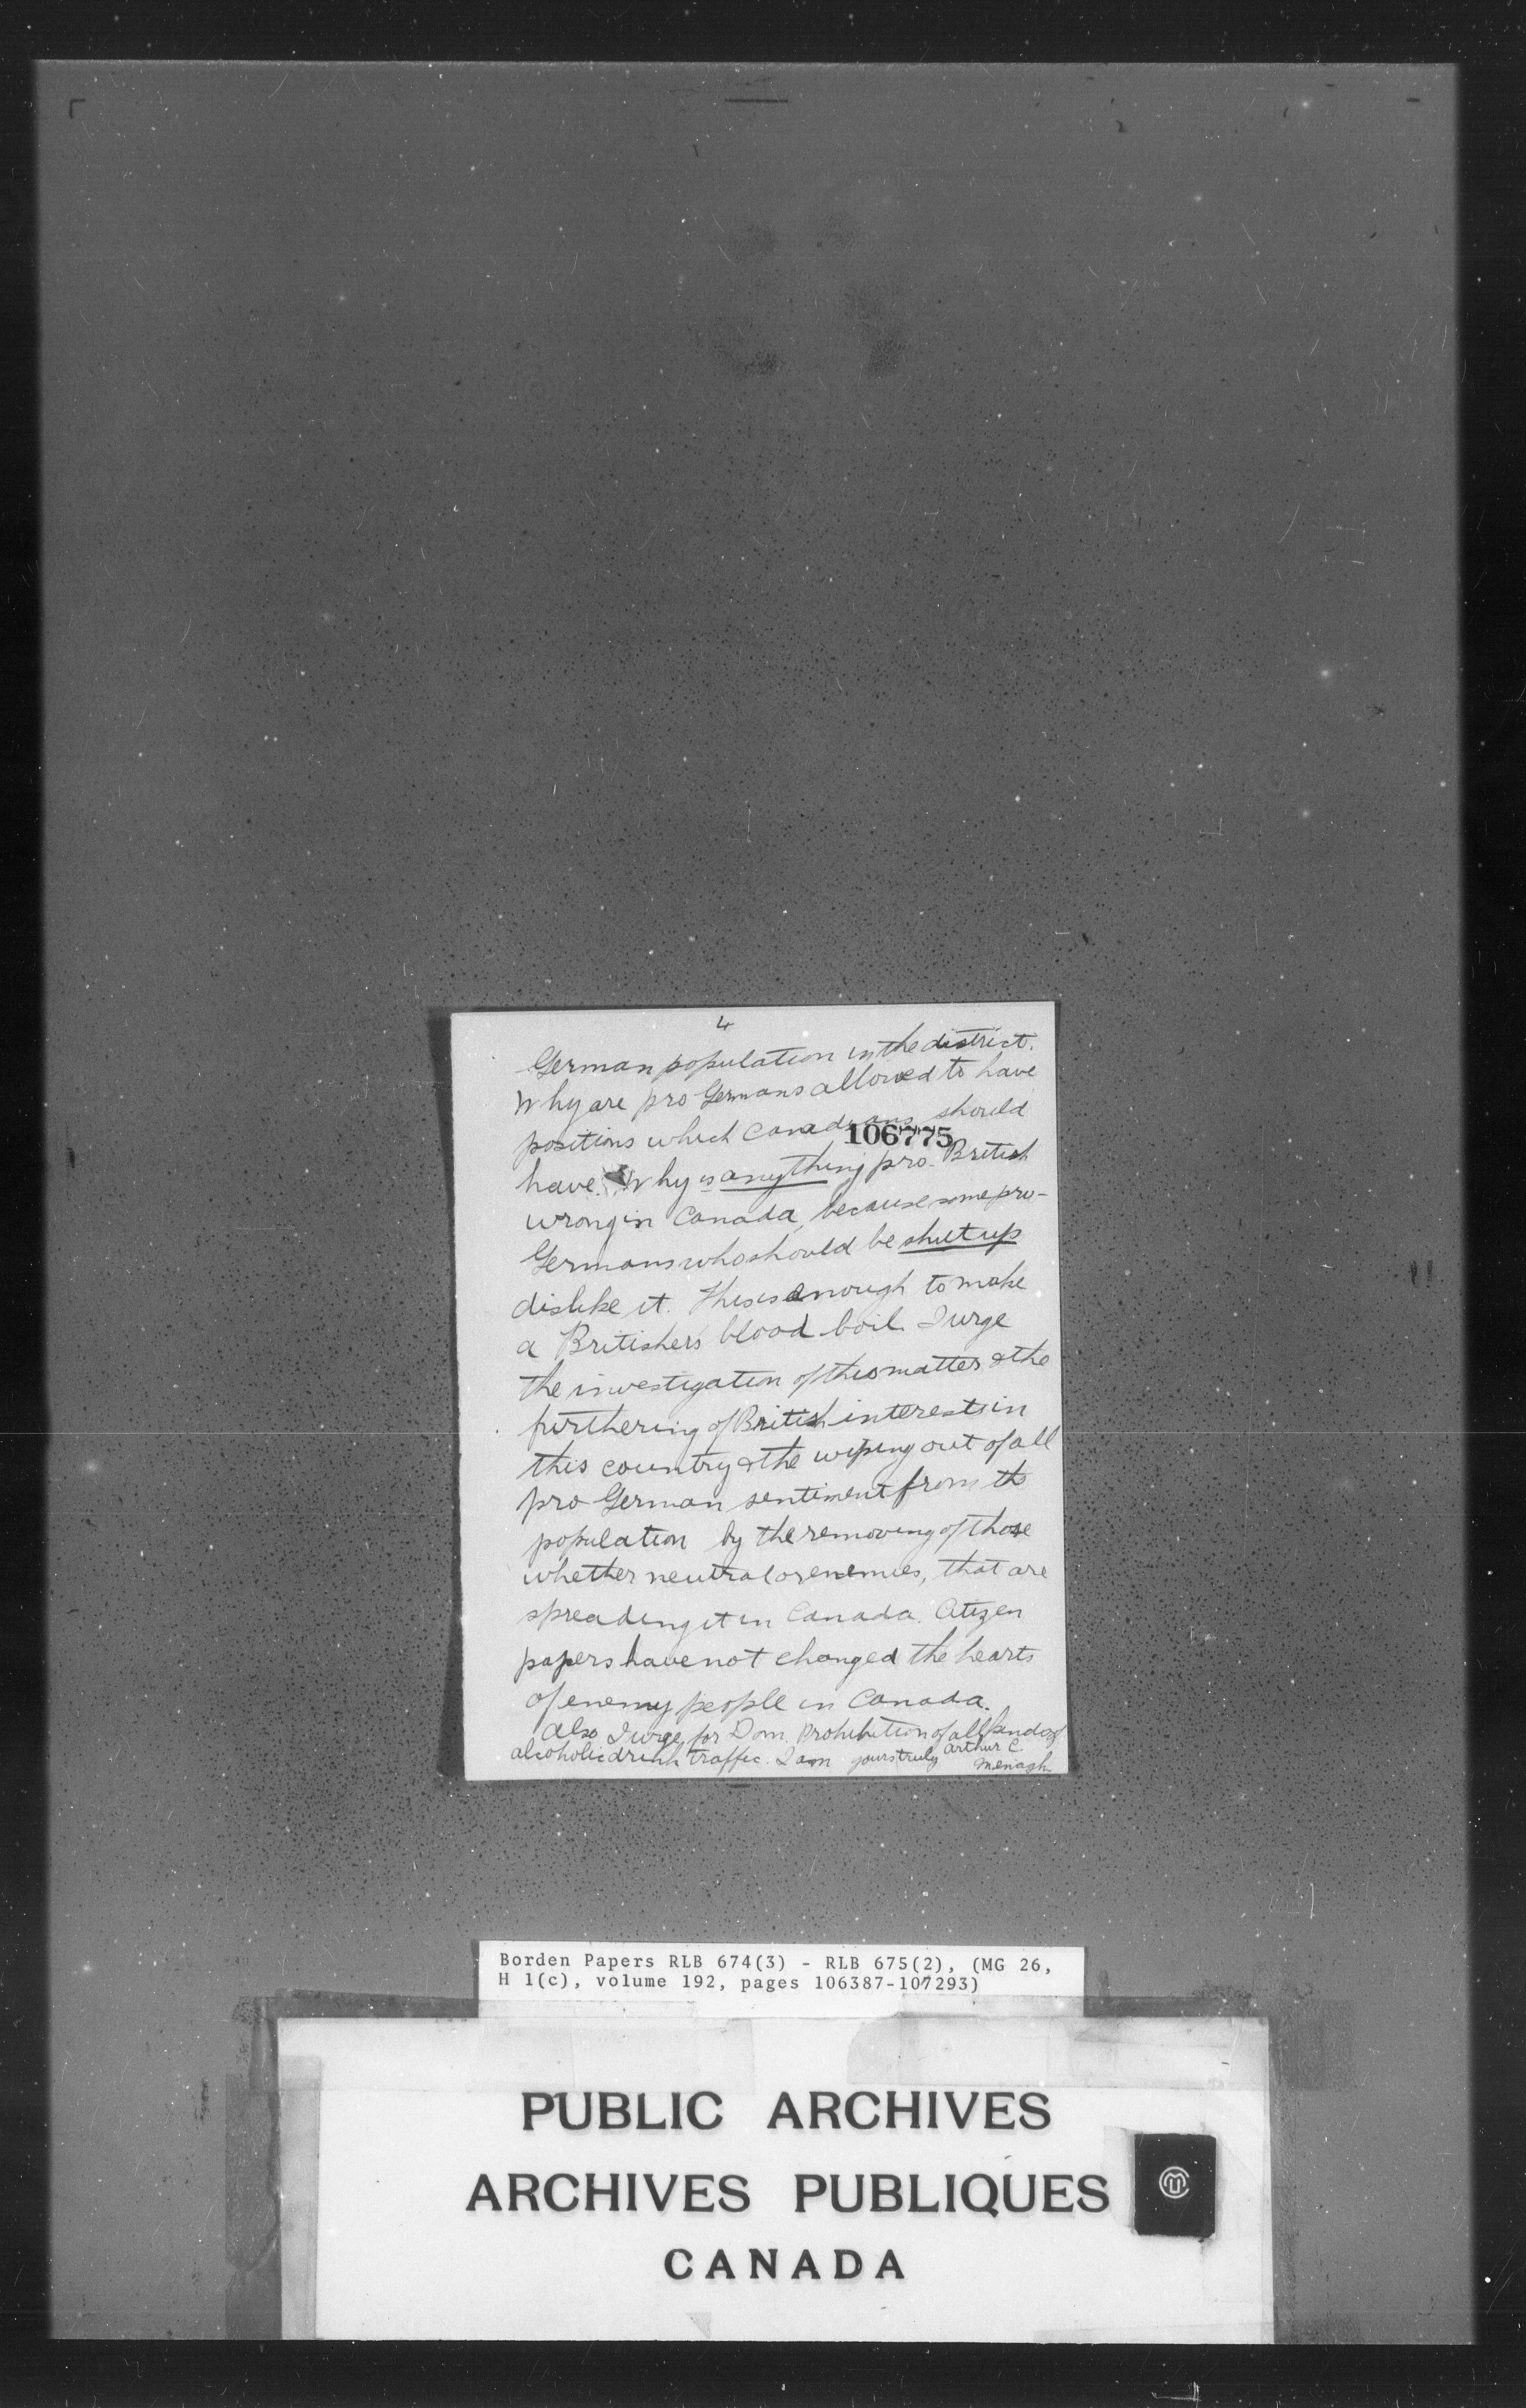 4
German population in the district.
Why are pro Germans allowed to have
positions which Canadians should
106775
have. Why is anything pro-British
wrong in Canada, because some pro-
Germans who should be shut up
dislike it. This is enough to make
a Britisher's blood boil. I urge
the investigation of this matter & the
furthering of British interests in
this country & the wiping out of all
pro German sentiment from the
population by the removing of those
whether neutral or enemies, that are
spreading it in Canada. Citizen
papers have not changed the hearts
of enemy people in Canada.
Also I urge for Dom. Prohibition of all kinds of
alcoholic drink traffic. I am yours truly Arthur C.
Menagh
Borden Papers RLB 674(3) - RLB 675(2), (MG 26,
H 1(c), volume 192, pages 106387-107293)
PUBLIC ARCHIVES
ARCHIVES PUBLIQUES
CANADA